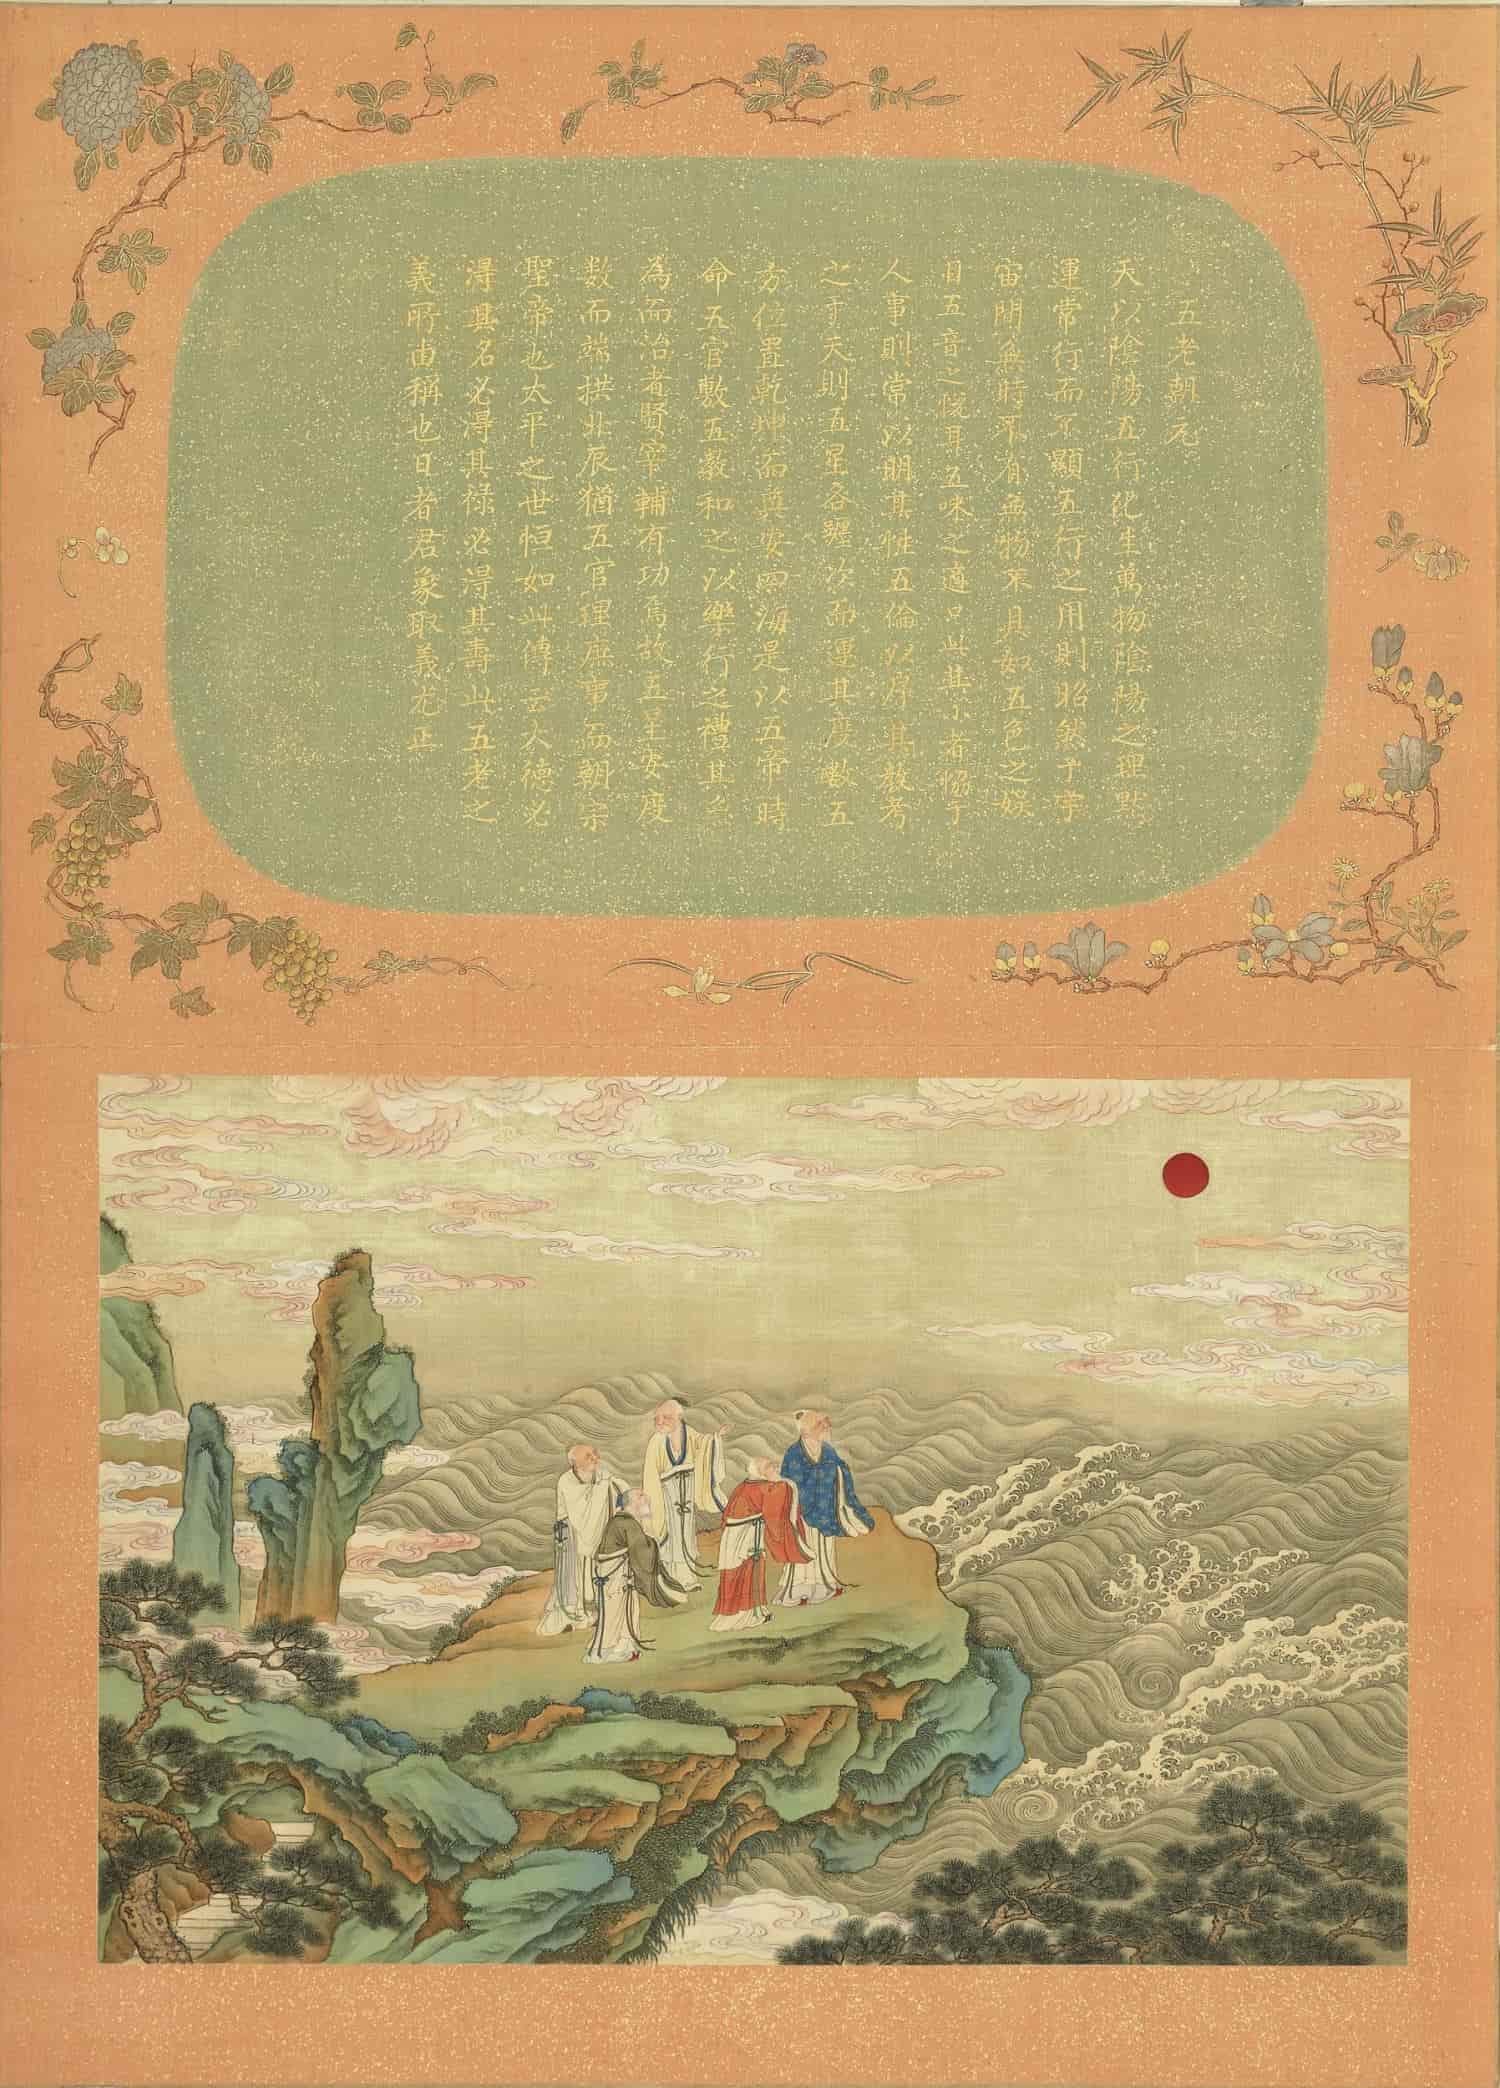 五老朝元
天以陰陽五行化生萬物陰陽之理默
運常行而不顯五行之用則昭然于宇
宙間無時不有無物不具如五色之娱
目五音之悦耳五味之適口此其小者恊于
人事則常以明其性五倫以厚其教考
之于天則五星各躔次而運其度敷五
方位置乾坤而奠安四海是以五帝時
命五官敷五教和之以樂行之禮其無
為而治者賢宰輔有功焉故五星安度
数而端拱北辰猶五官理庶事而朝宗
聖帝也太平之世恒如此傳云大德必
淂其名必淂其禄必淂其壽此五老之
義所由稱也日者君象取義尤正